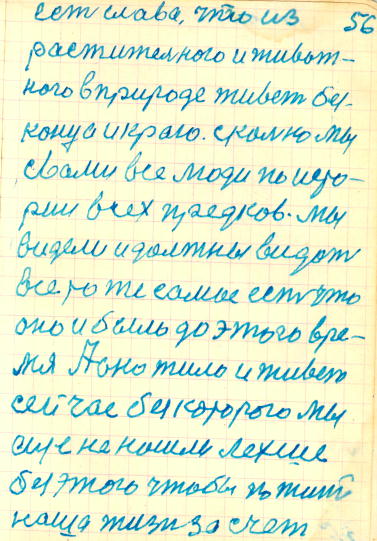 есть слава, что из 56
растителного и живот-
ного в природе живет без
конца и краю. сколко мы
свами все люди по исто-
рии всех предков. мы
видели и должны видат
все то же самое есть что
оно и было до этого вре-
мя Аоно жило и живет
сейчас без которого мы
еще не нашли лехше
без этого чтобы пожить
наша жизн за счет